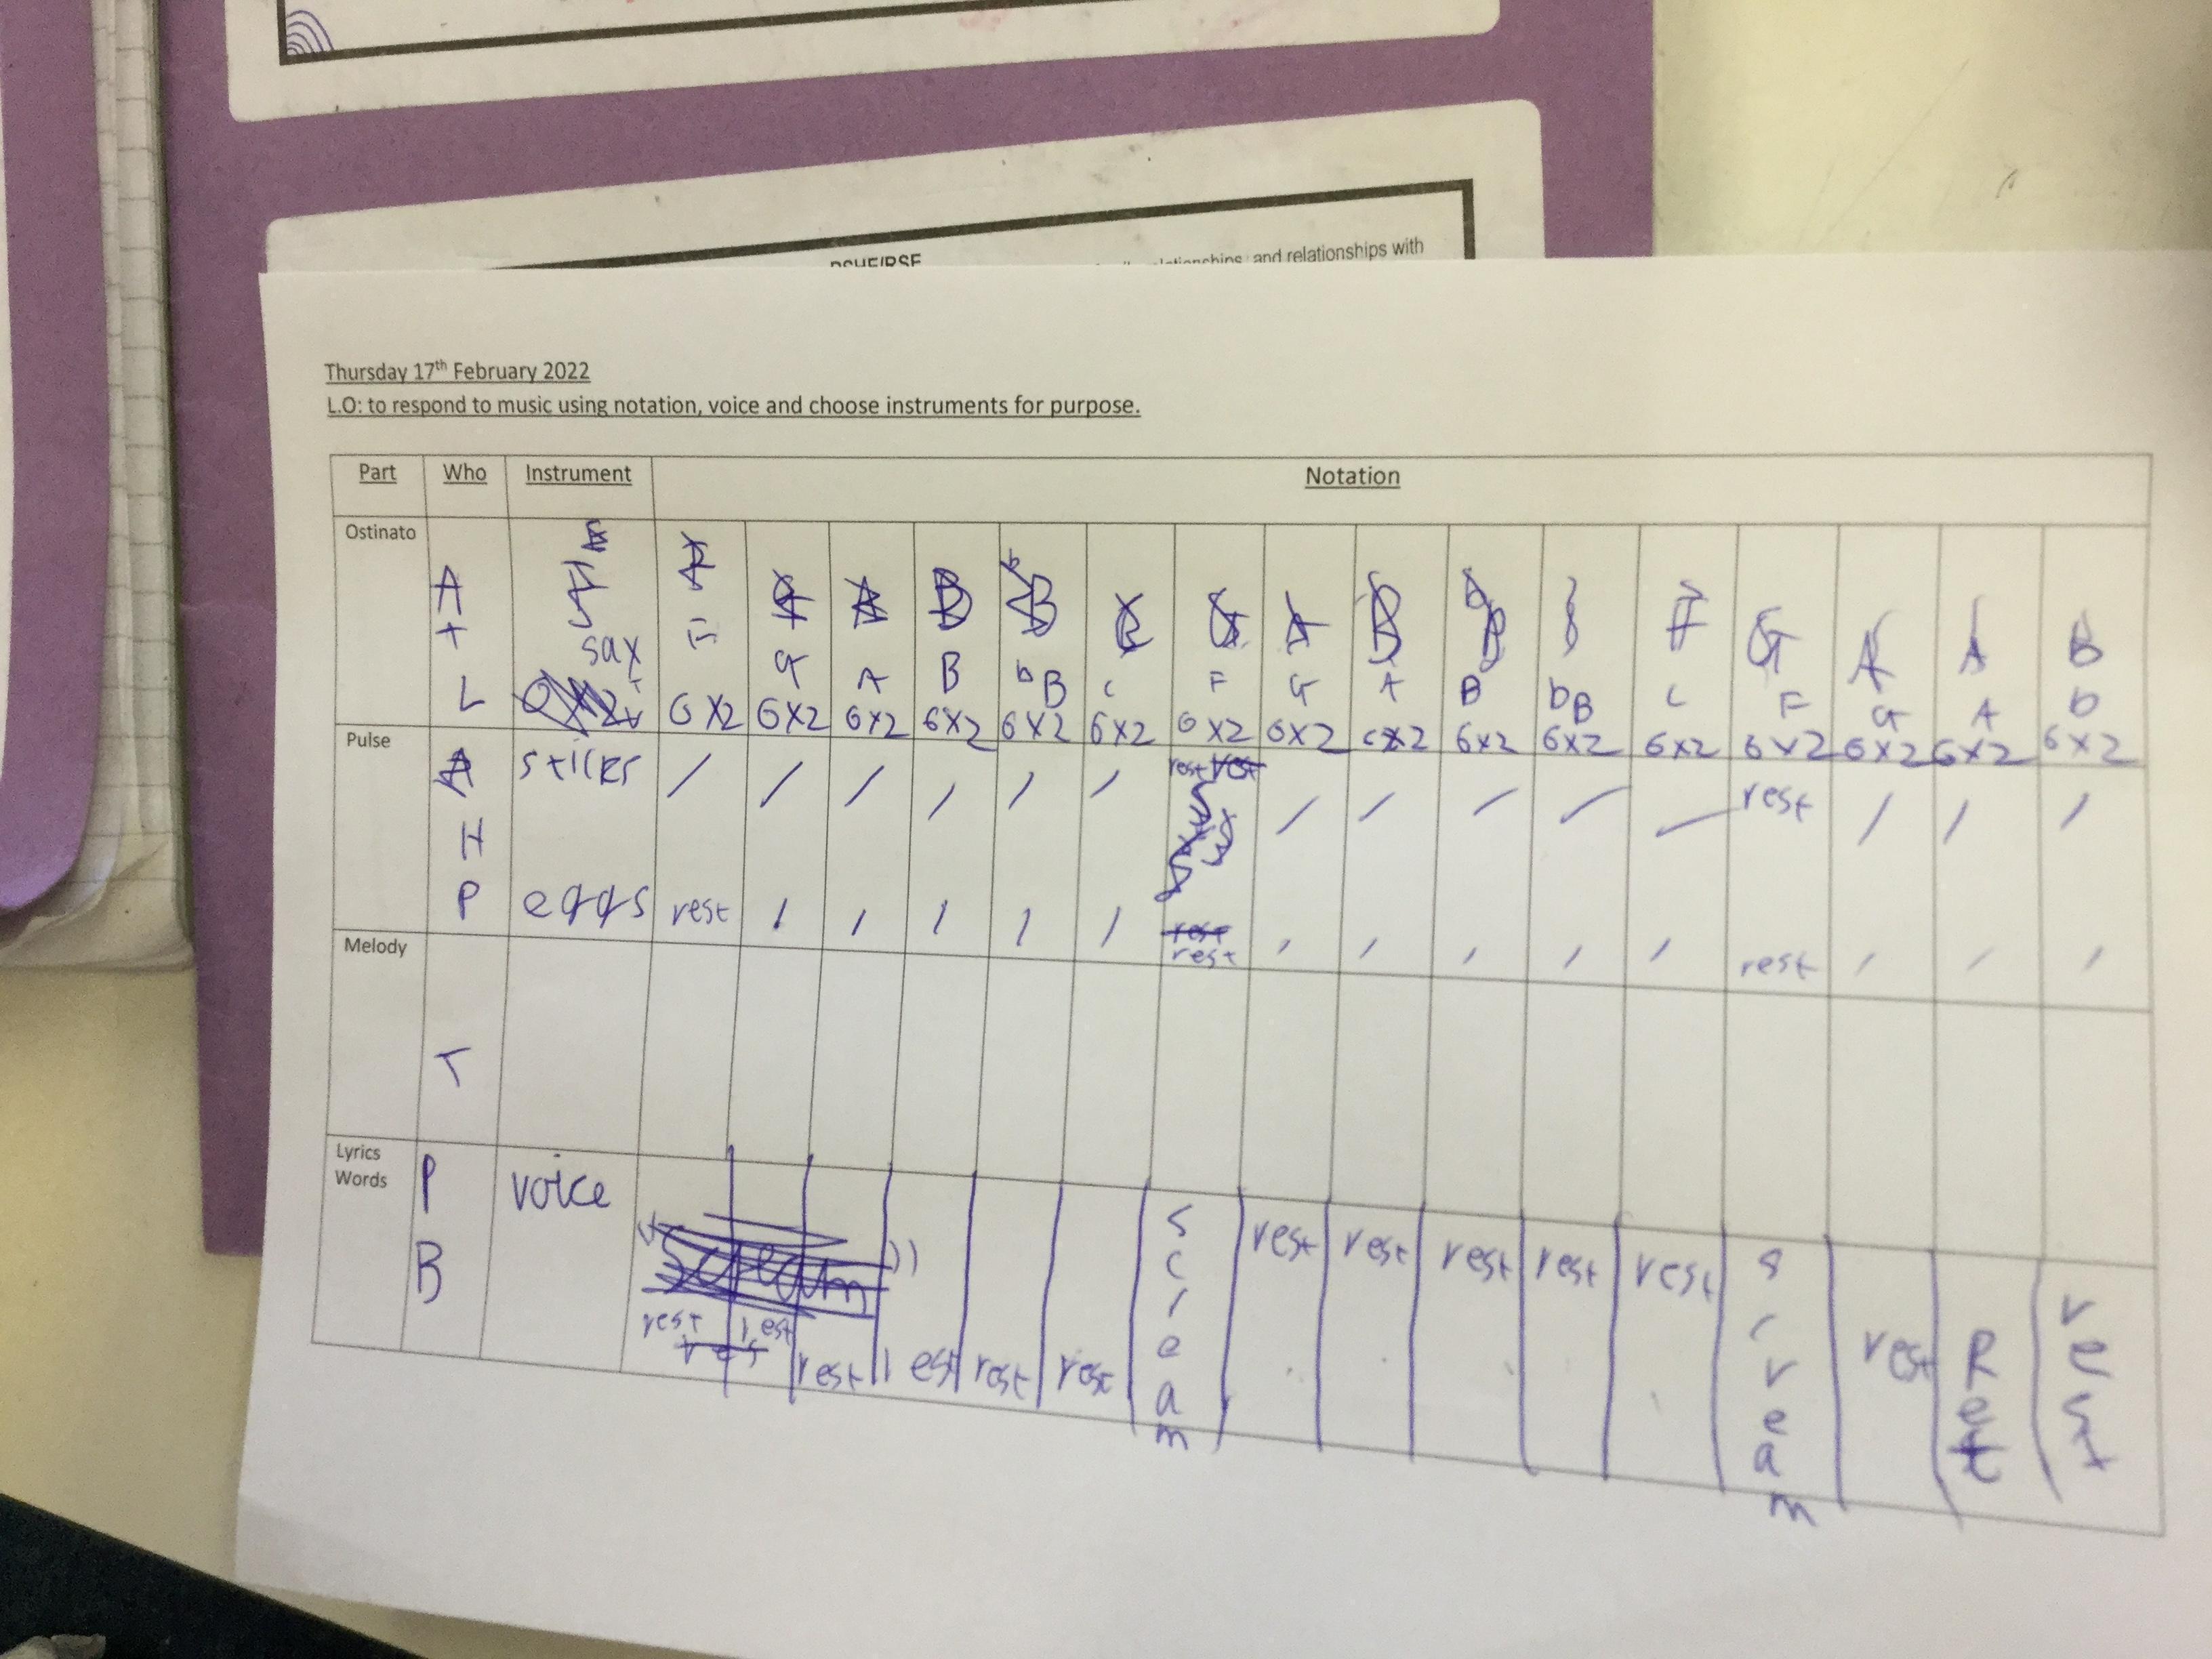 PSHE/RSE
relationships and relationships with
Thursday 17th February 2022
L.O: to respond to music using notation, voice and choose instruments for purpose.
Part Who Instrument Notation
Ostinato
A
t sax
F G A B bB c F G A B bB C F G A b
L 6x2 6x2 6x2 6x2 6x2 6x2 6x2 6x2 6x2 6x2 6x2 6x2 6x2 6x2 6x2 6x2
Pulse
A sticks / / / / / / rest rest / / / / / rest / / /
H
P eggs rest / / / / / rest / / / / / rest / / /
rest
Melody
T
Lyrics
Words
P voice
B scream
rest rest rest rest rest rest scream rest rest rest rest rest srream rest Ret rest